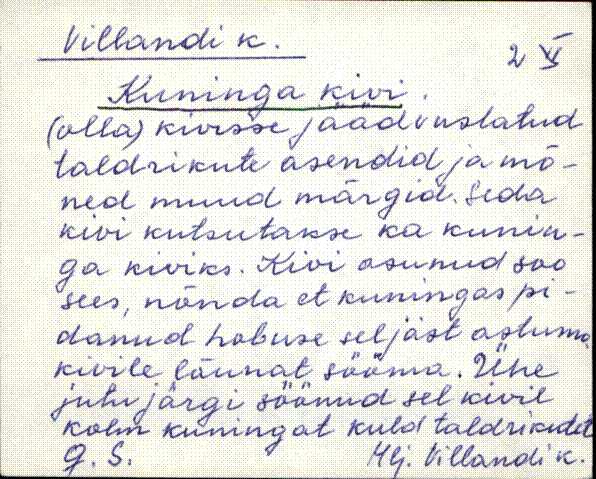 Villandi k.
2 X
Kuninga kivi.
(olla) kivisse jäädvuslatud
taldrikute asendid ja mõ-
ned muud märgid. Seda
kivi kutsutakse ka kunin-
ga kiviks. Kivi asunud soo
sees, nõnda et kuningas pi-
danud hobuse seljast astuma
kivile lõunat sööma. Ühe
jutu järgi söönud sel kivil
kolm kuningat kuld taldrikutelt
G. S. Hlj. Villandi k.